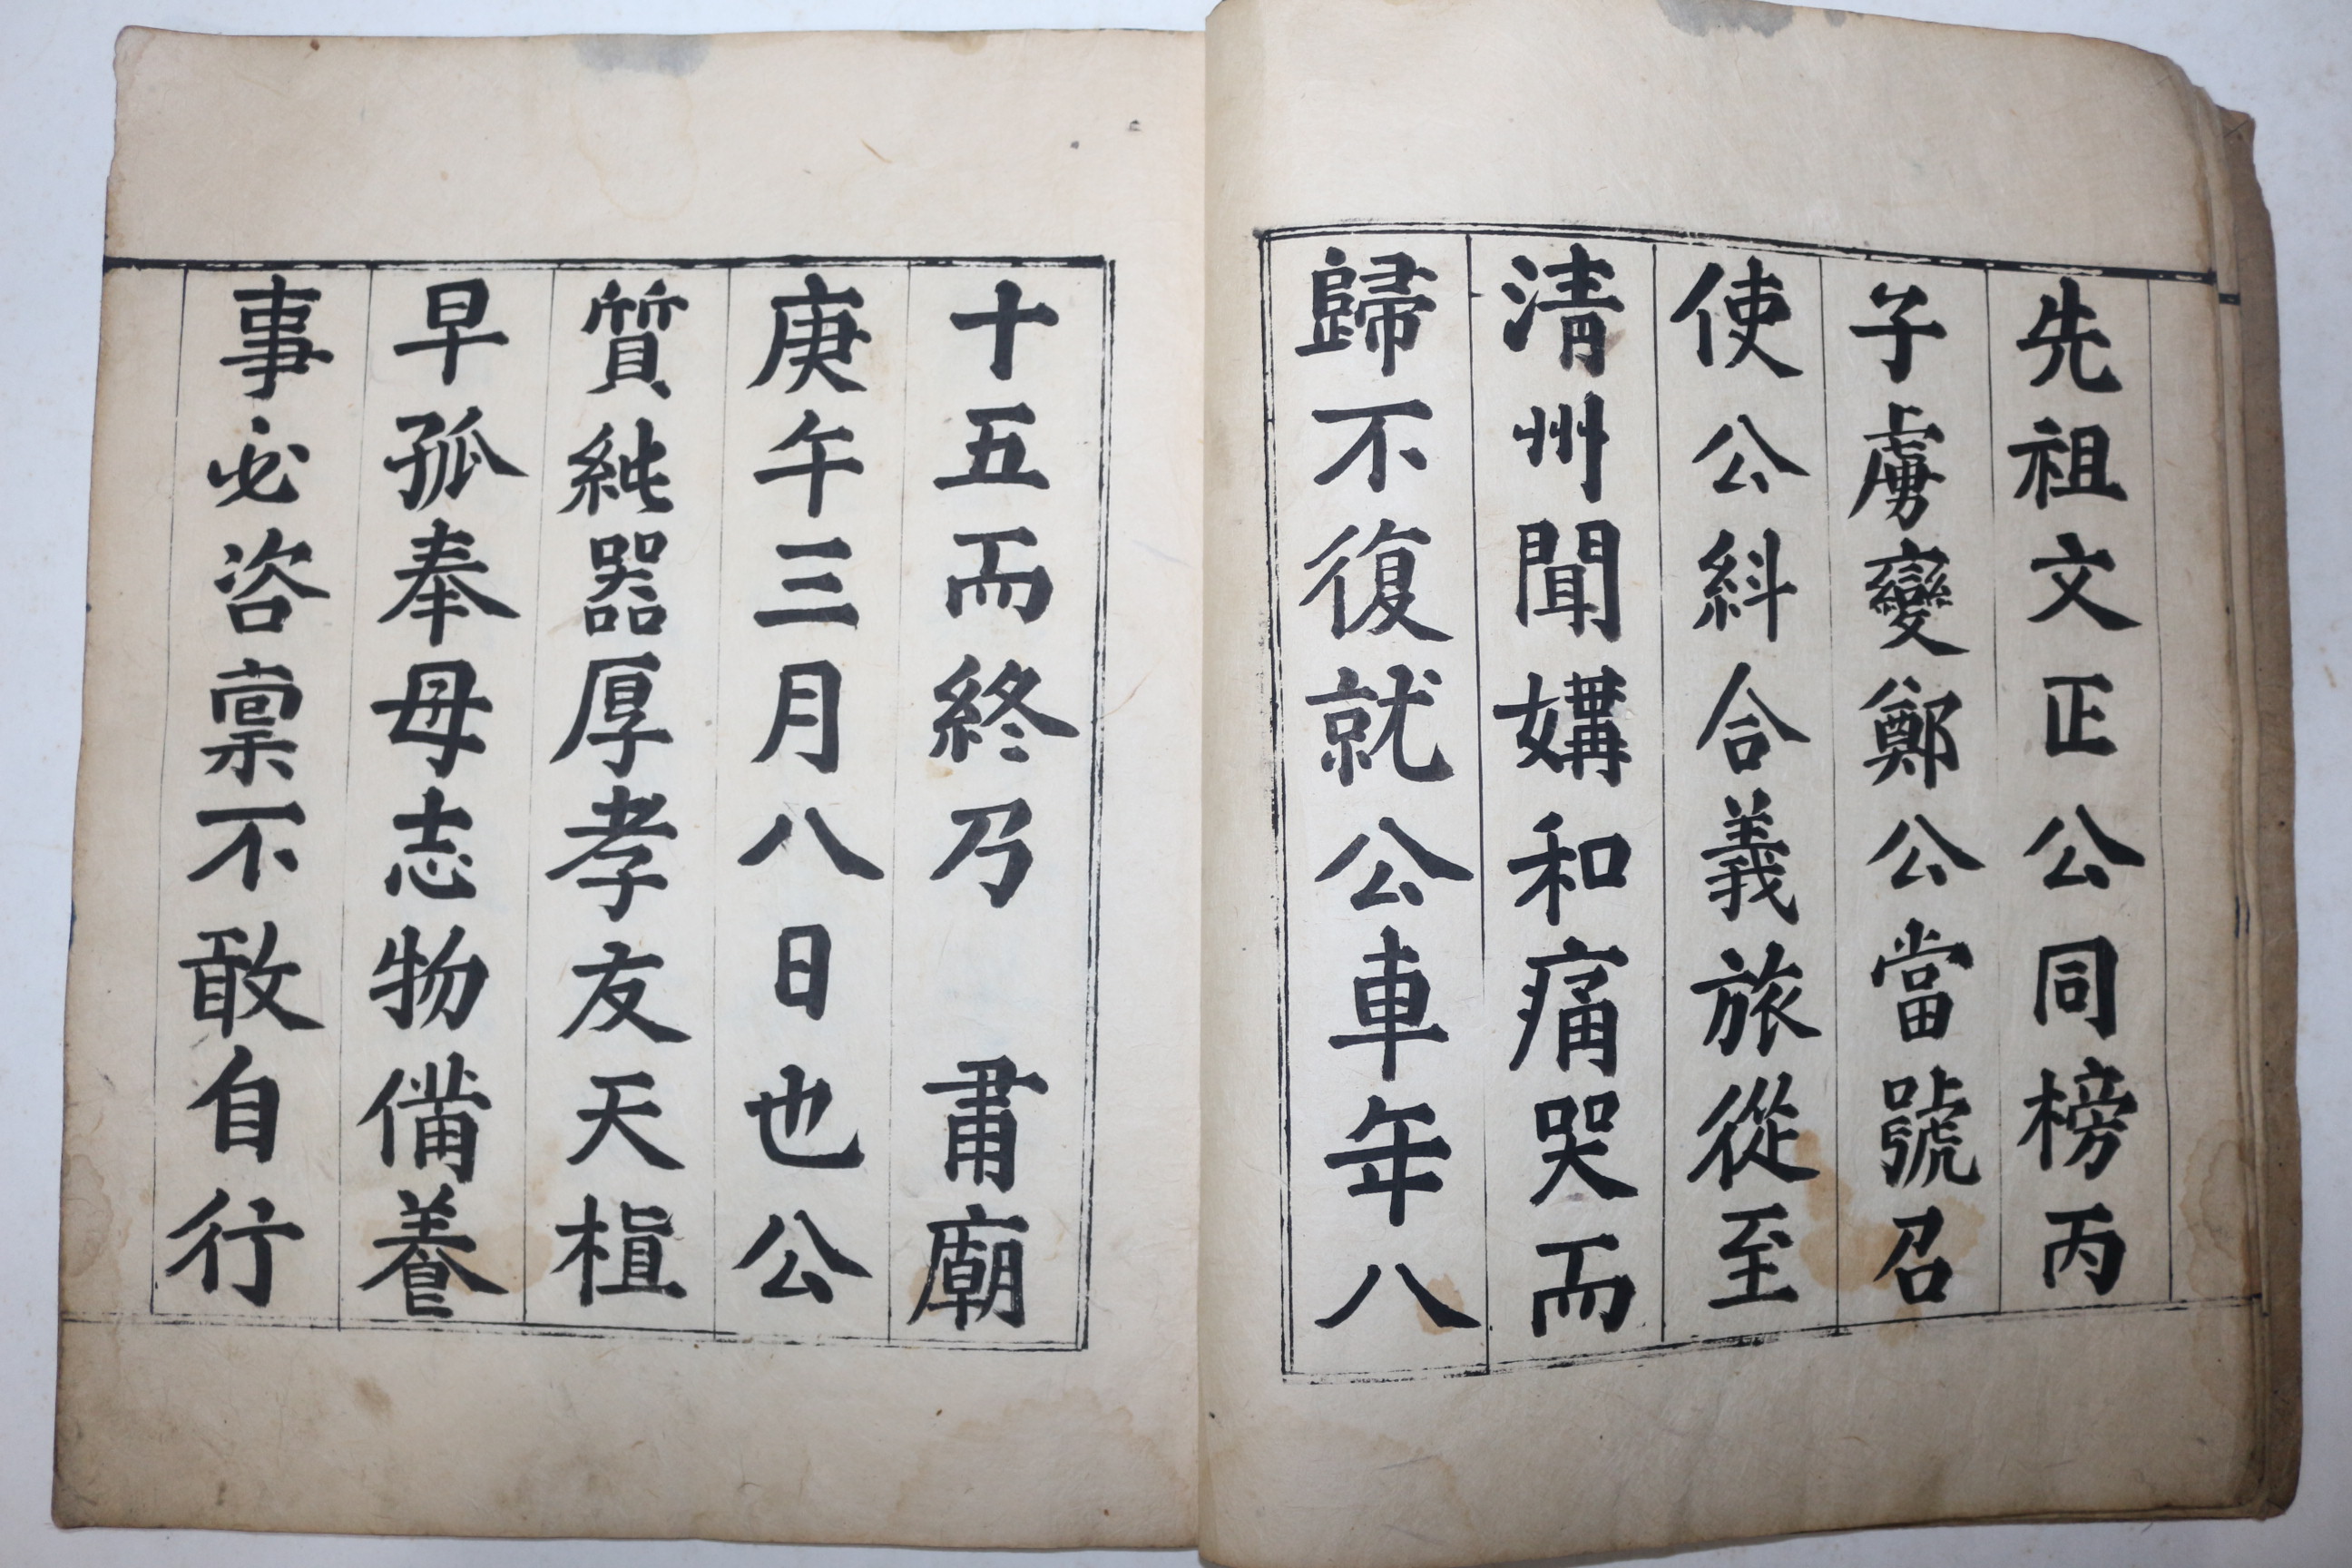 先祖文正公同榜丙
子虜變鄭公當號召
使公糾合義旅從至
淸州聞媾和痛哭而
歸不復就公車年八
十五而終乃　肅廟
庚午三月八日也公
質純器厚孝友天植
早孤奉母志物備養
事必咨稟不敢自行